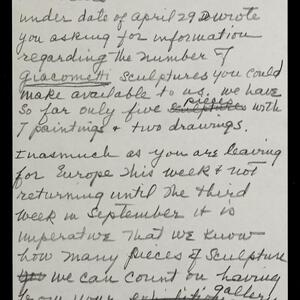 under date of April 29 I wrote
you asking for information
regarding the number of
Giacometti sculptures you could
make available to us. We have
so far only five sculptures pieces with
7 paintings & two drawings.
Inasmuch as you are leaving
for Europe this week & not
returning until the third
week in September it is
imperative that we know
how many pieces of sculpture
we can count on having
from your gallery